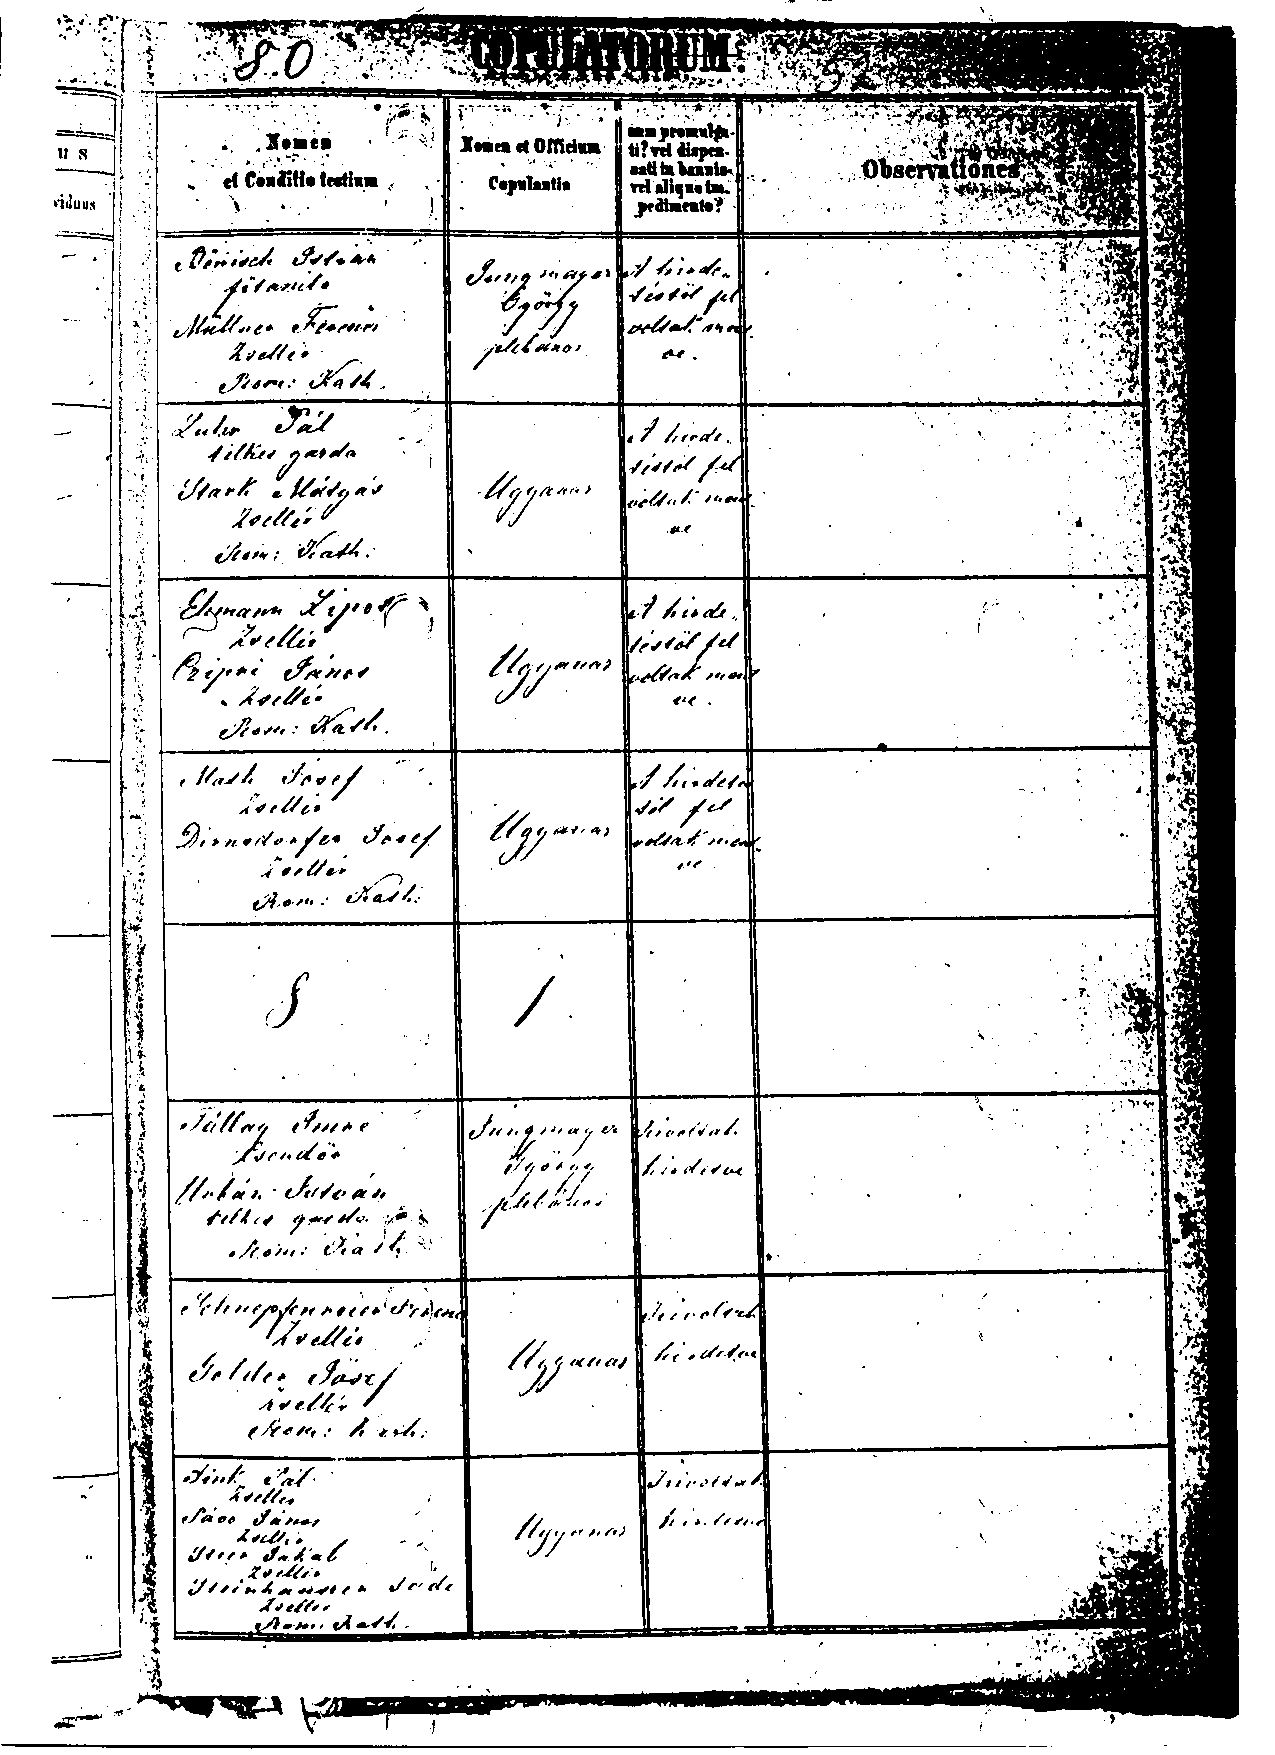 80
COPULATORUM.
92
us
viduus
Nomen
et Conditio testium
Nomen et Officium
Copulantis
num promulga-
ti? vel dispen-
sati in bannis
vel aliquo im-
pedimento?
Observationes
István
főtanító
Müllner Ferencz
Zsellér
Rom: Kath.
Jungmayer
György
plebános
A hirde-
téstöl fel
voltak ment
ve.
Pál
telkes gazda
Stark Mátyás
Zsellér
Rom: Kath.
Ugyanaz
A hirde-
téstöl fel
voltak ment
ve
Zsellér
János
Zsellér
Rom: Kath.
Ugyanaz
A hirde-
téstöl fel
voltak ment
ve.
József
Zsellér
Dirnsdorfer József
Zsellér
Rom: Kath:
Ugyanaz
A hirdetés
töl fel
voltak ment
ve
Imre
Csendőr
Urbán István
telkes gazda
Rom: Kath.
Jungmayer
György
plebános
Kivoltak
hirdetve
Ferencz
Zsellér
József
Zsellér
Rom: Kath:
Ugyanaz
Kivoltak
hirdetve
Fink Pál
Zsellér
János
Zsellér
Jakab
Zsellér
Zsellér
Rom: Kath.
Ugyanaz
Kivoltak
hirdetve